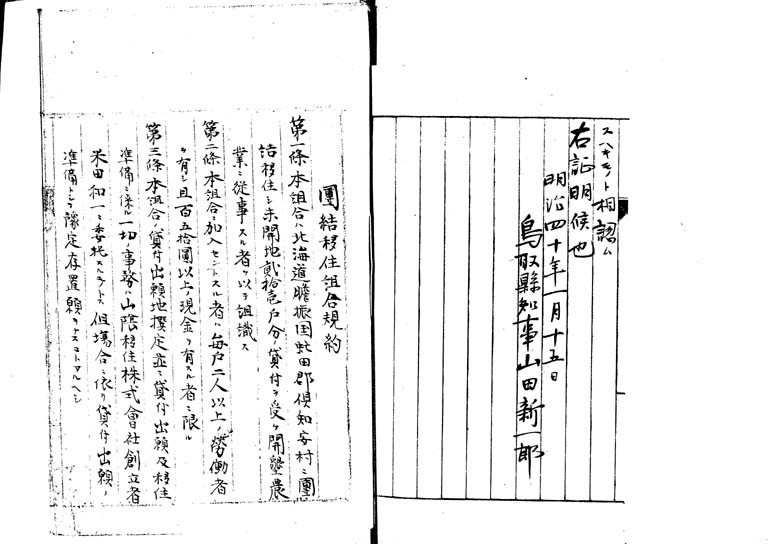 スヘキモノト相認ム
右証明候也
明治四十年一月十五日
鳥取縣知事山田新一郎
團結移住組合規約
第一條本組合ハ北海道膽振国虻田郡倶知安村ニ團
結移住シ未開地貳拾壱戸分ノ貸付ヲ受ケ開墾農
業ニ従事スル者ヲ以テ組織ス
第二條本組合ニ加入セントスル者ハ毎戸二人以上ノ労働者
ヲ有シ且百五拾圓以上ノ現金ヲ有スル者ニ限ル
第三條本組合ノ貸付出願地撰定並ニ貸付出願及移住
準備ニ係ル一切ノ事務ハ山陰移住株式會社創立者
米田和一ニ委托スルモノトス但塲合ニ依リ貸付出願ノ
準備トシテ豫定存置願ヲナスコトアルヘシ